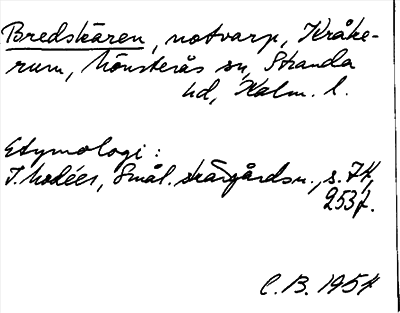 Bredskären, notvarp, Kråke-
rum, Mönsterås sn, Stranda
hd, Kalm. l.
Etymologi:
T. Modéer, Smål. skärgårdsn., s. 74,
253 f.
C. B. 1954